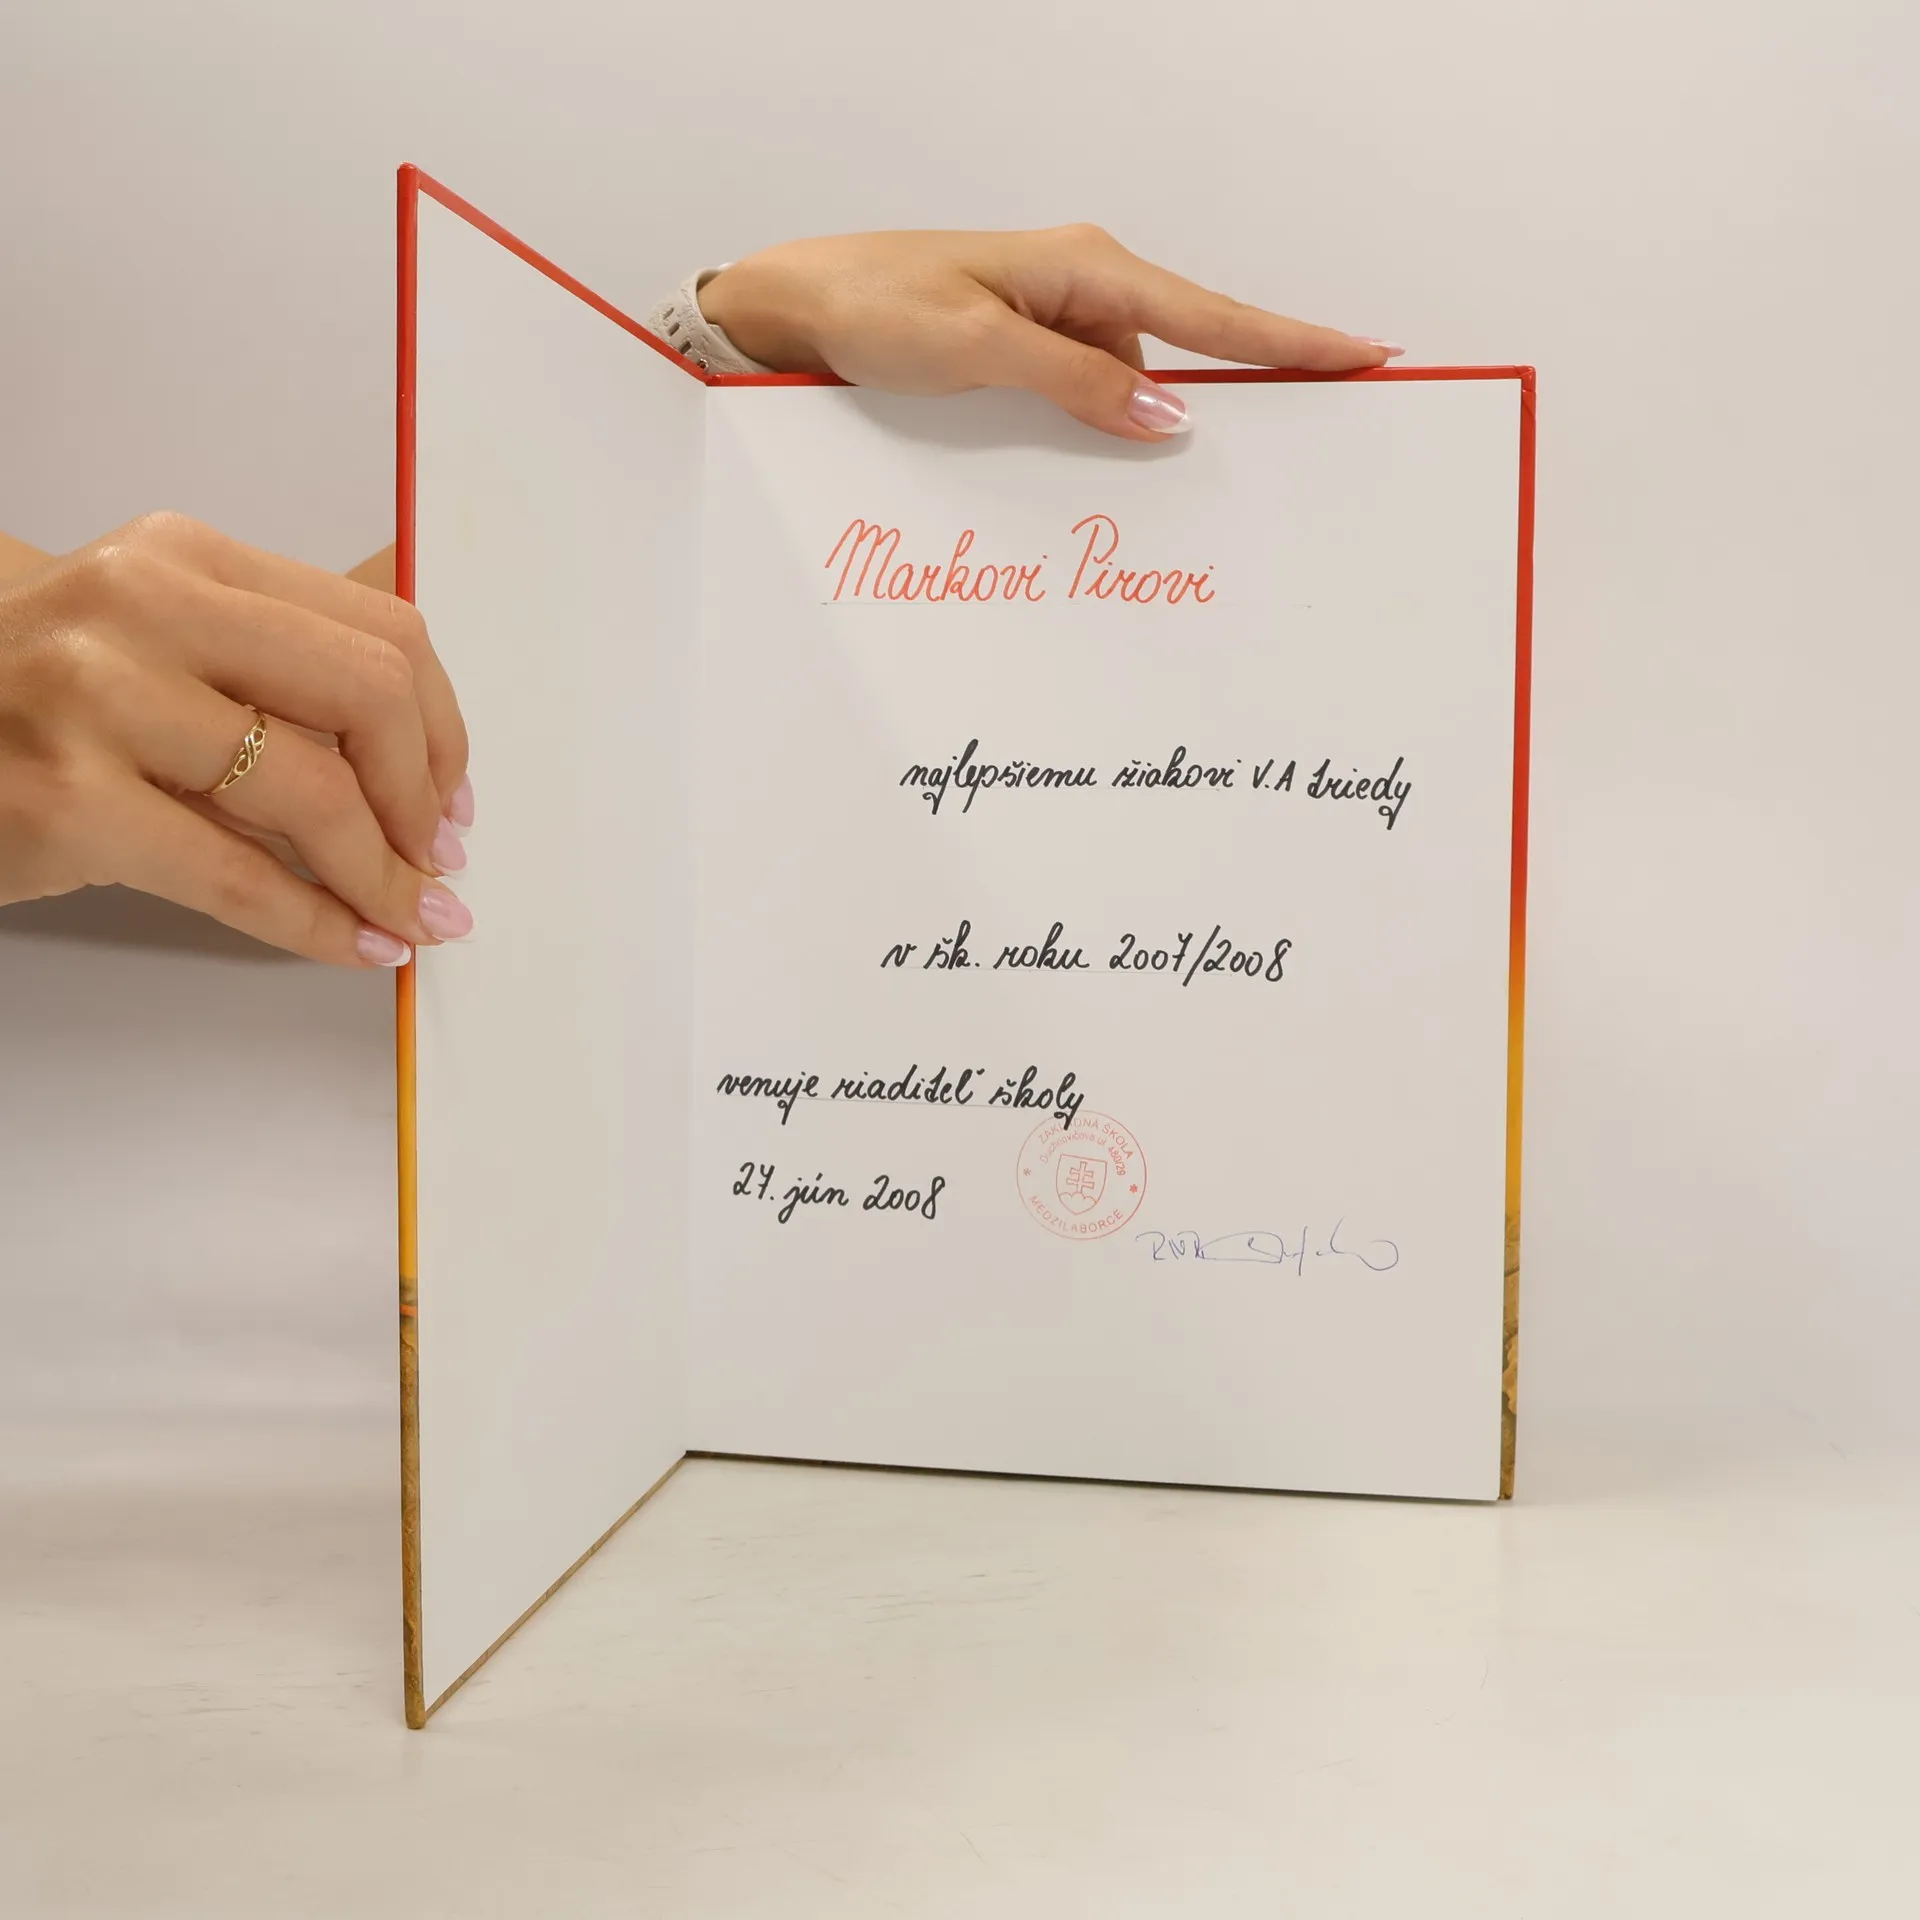 Markovi Pirovi
najlepšiemu žiakovi V.A triedy
v šk. roku 2007/2008
venuje riaditeľ školy
27. jún 2008
ZÁKLADNÁ ŠKOLA
Duchnovičova ul. 480/29
MEDZILABORCE